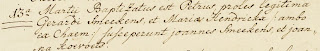 13a Martÿ Baptizatus est Petrus proles legitima
Gerardi Smeekens et Maria Hendrickx ambo
ex Chaem; susceperunt joannes Smeekens et joan,
na